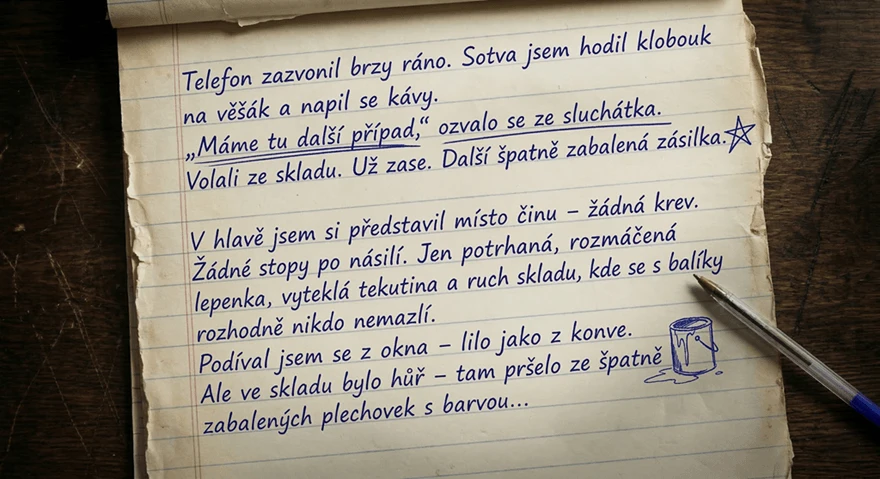 Telefon zazvonil brzy ráno. Sotva jsem hodil klobouk
na věšák a napil se kávy.
„Máme tu další případ,“ ozvalo se ze sluchátka.
Volali ze skladu. Už zase. Další špatně zabalená zásilka.
V hlavě jsem si představil místo činu – žádná krev.
Žádné stopy po násilí. Jen potrhaná, rozmáčená
lepenka, vyteklá tekutina a ruch skladu, kde se s balíky
rozhodně nikdo nemazlí.
Podíval jsem se z okna – lilo jako z konve.
Ale ve skladu bylo hůř – tam pršelo ze špatně
zabalených plechovek s barvou...